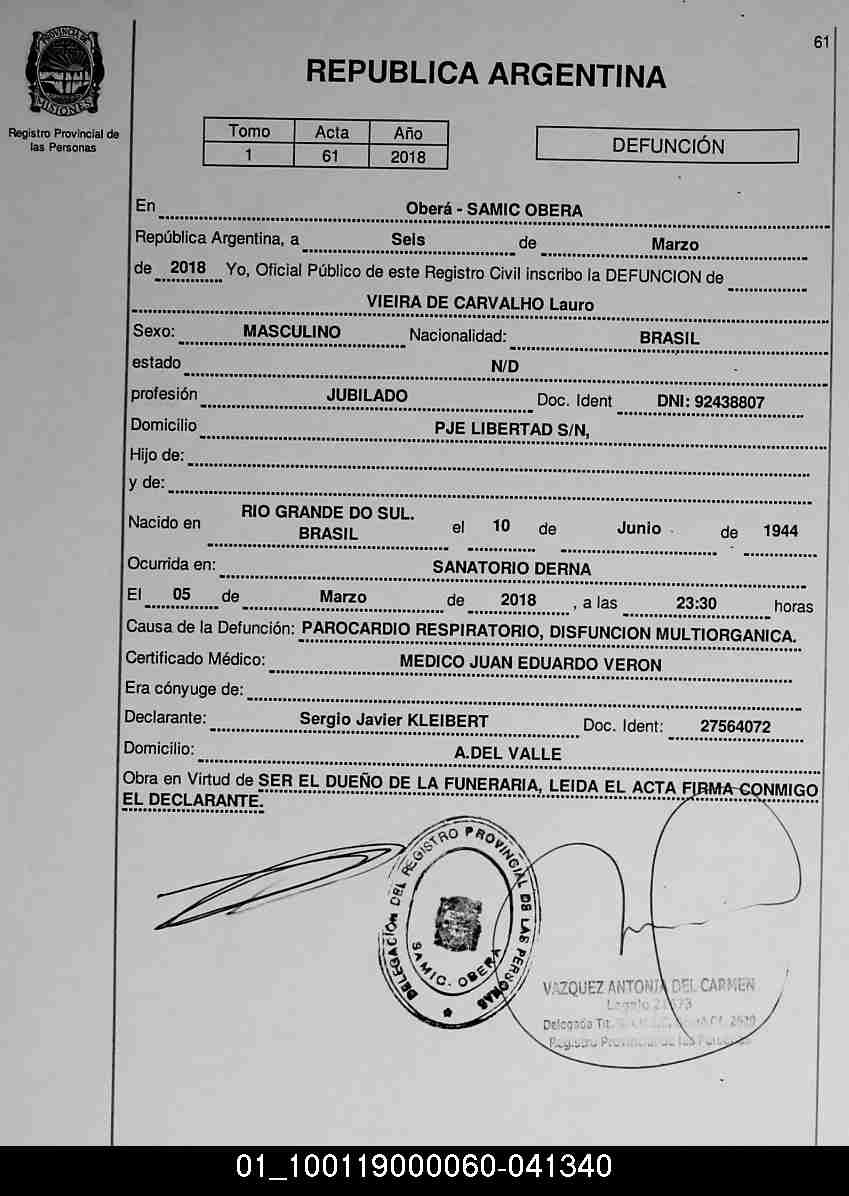 61
PROVINCIA DE MISIONES
Registro Provincial de
las Personas
REPUBLICA ARGENTINA
Tomo Acta Año
1 61 2018
DEFUNCIÓN
En Oberá - SAMIC OBERA
República Argentina, a Seis de Marzo
de 2018 Yo, Oficial Público de este Registro Civil inscribo la DEFUNCION de
VIEIRA DE CARVALHO Lauro
Sexo: MASCULINO Nacionalidad: BRASIL
estado N/D
profesión JUBILADO Doc. Ident DNI: 92438807
Domicilio PJE LIBERTAD S/N,
Hijo de:
y de:
Nacido en RIO GRANDE DO SUL. BRASIL el 10 de Junio de 1944
Ocurrida en: SANATORIO DERNA
El 05 de Marzo de 2018, a las 23:30 horas
Causa de la Defunción: PAROCARDIO RESPIRATORIO, DISFUNCION MULTIORGANICA.
Certificado Médico: MEDICO JUAN EDUARDO VERON
Era cónyuge de:
Declarante: Sergio Javier KLEIBERT Doc. Ident: 27564072
Domicilio: A.DEL VALLE
Obra en Virtud de SER EL DUEÑO DE LA FUNERARIA, LEIDA EL ACTA FIRMA CONMIGO
EL DECLARANTE.
DELEGACIÓN DEL REGISTRO PROVINCIAL DE LAS PERSONAS
SAMIC. OBERA
VAZQUEZ ANTONIA DEL CARMEN
Legajo
Delegada Tit.
Registro Provincial de las Personas
01_100119000060-041340